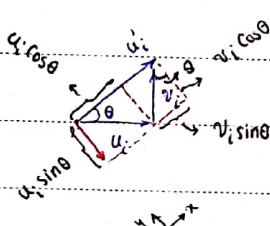 u_i cosθ
u_i'
v_i cosθ
θ
θ
v_i
u_i
v_i sinθ
u_i sinθ
y
x